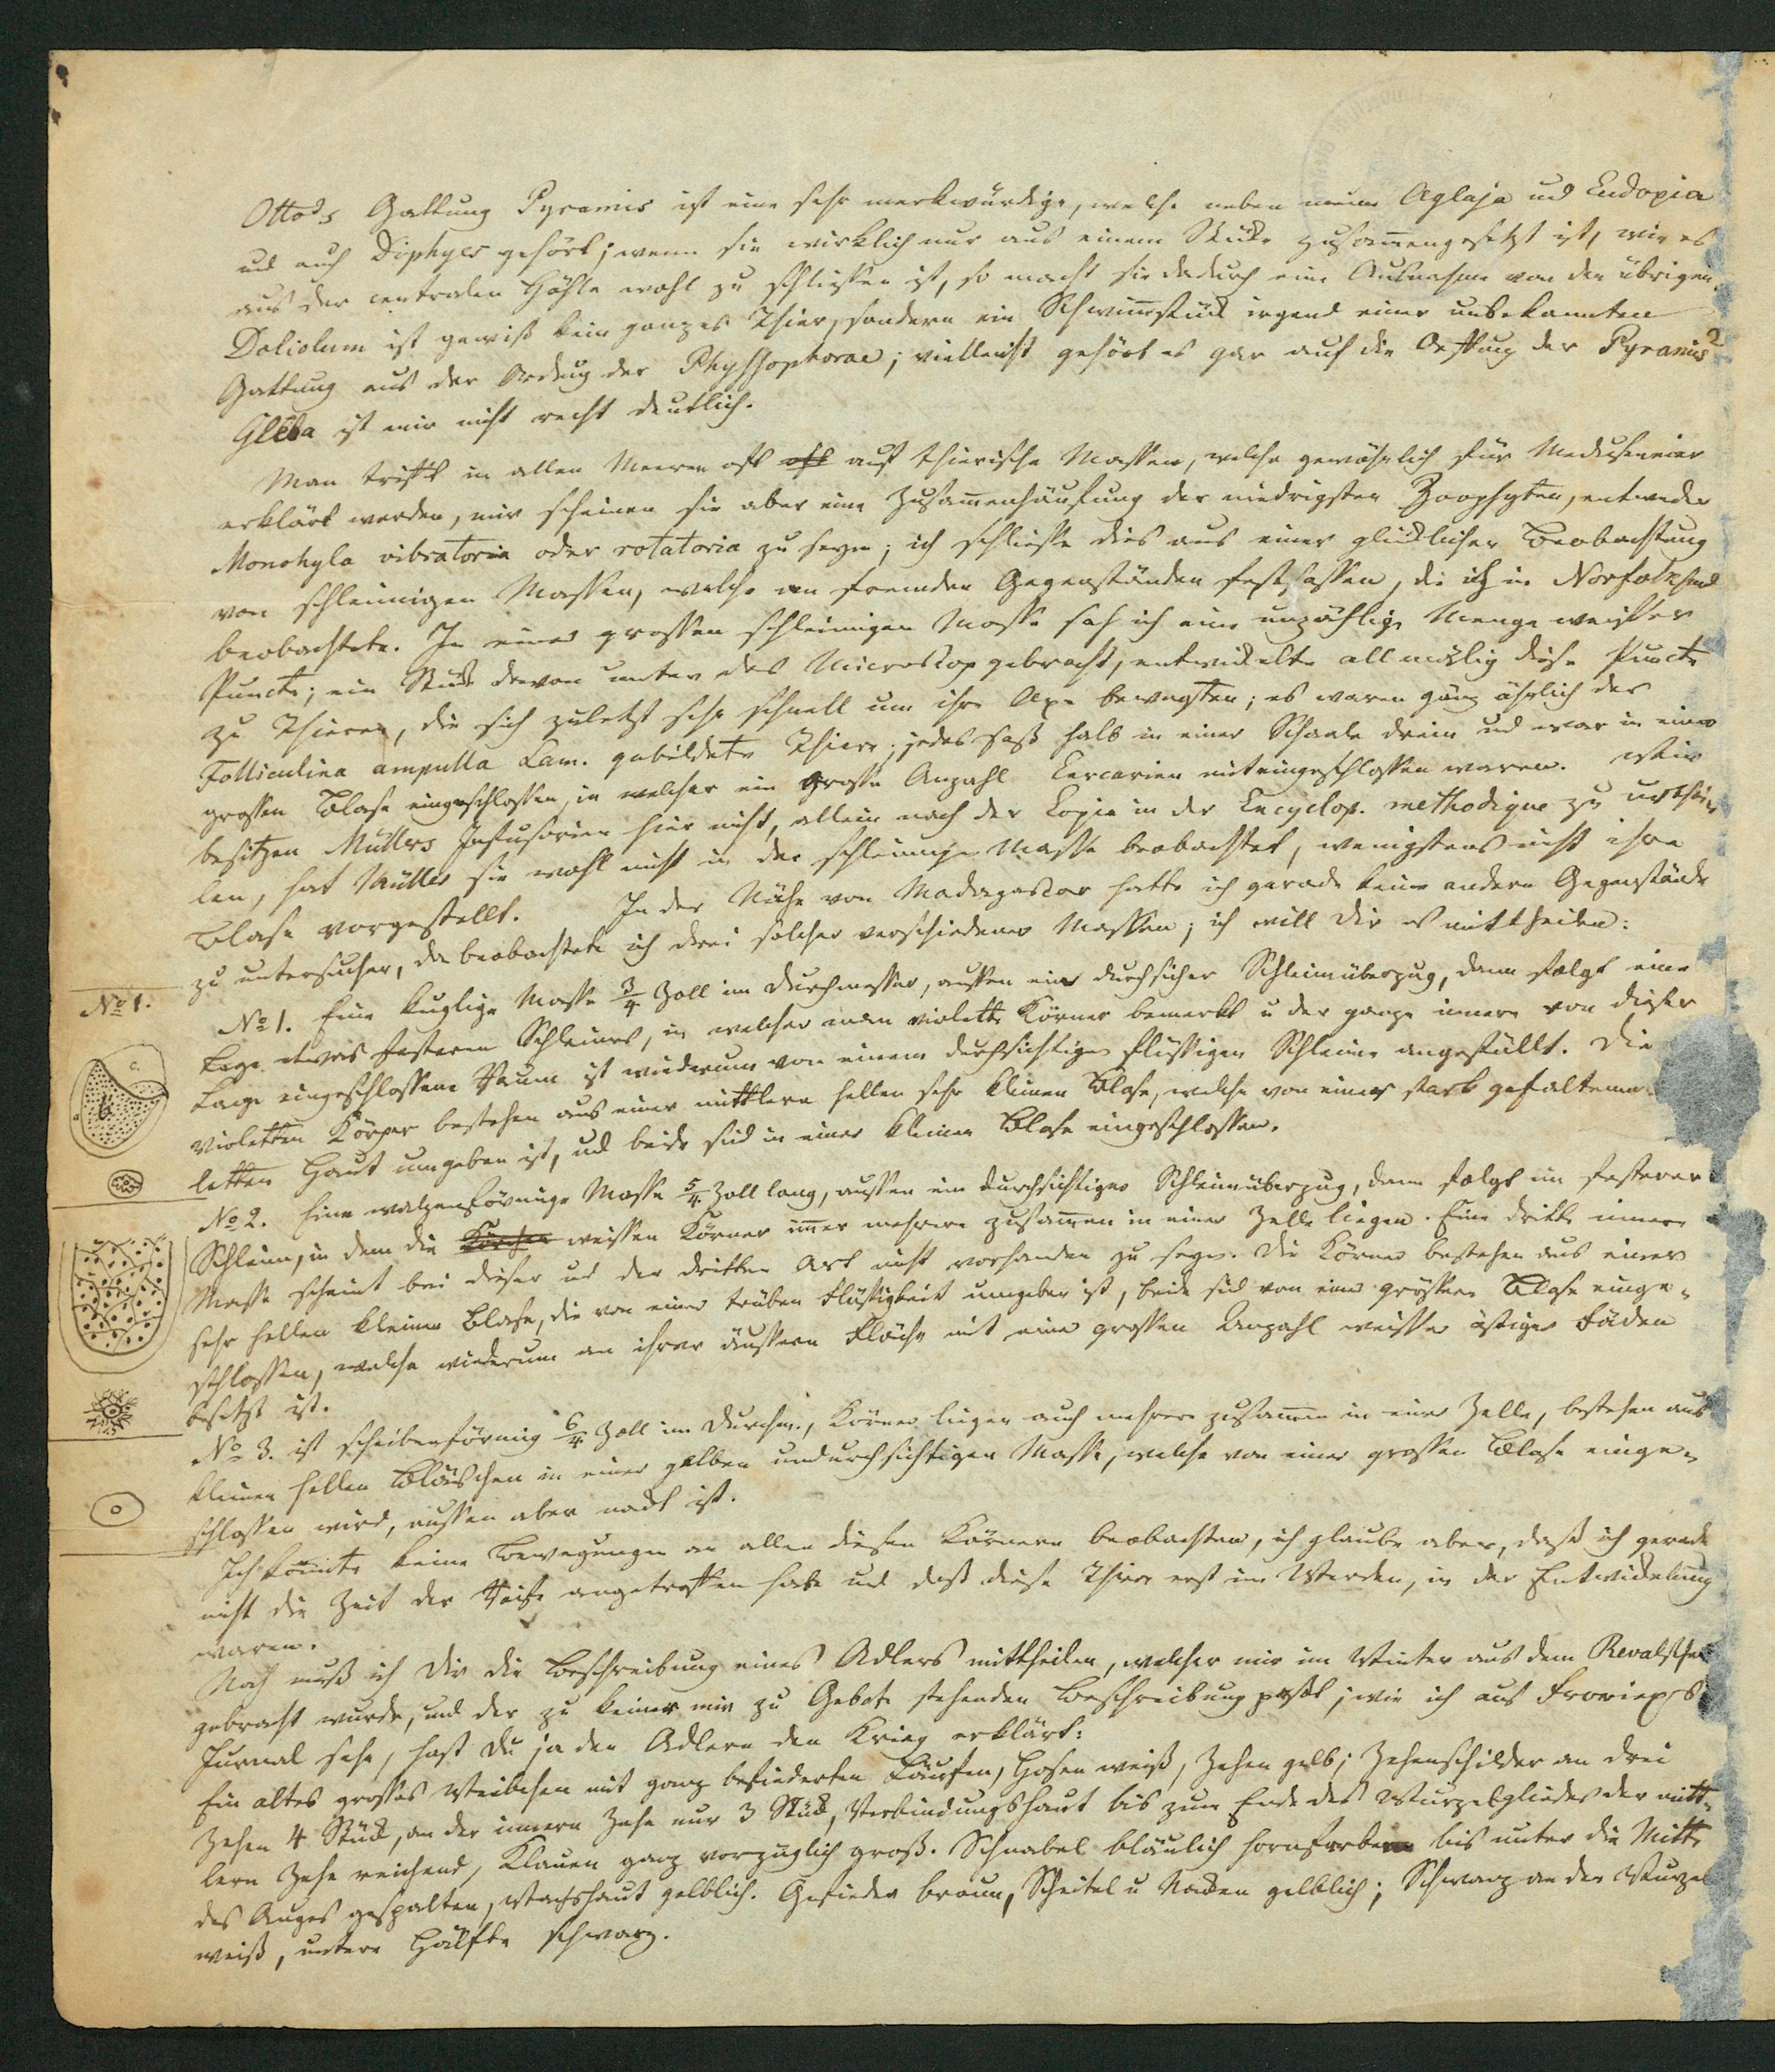 Otto's Gattung Pyramis ist eine sehr merkwürdige, welche neben meine Aglaja und Eudoxia
und auch Diphyes gehört; wenn sie wirklich nur aus einem Stücke zusam̄engesetzt ist, wie es
aus der centralen Höhle wohl zu schliessen ist, so macht sie dadurch eine Ausnahme von den übrigen.
Doliolum ist gewiß kein ganzes Thier, sondern ein Schwim̄stück irgend einer unbekannten
Gattung aus der Ordnug der Physsophorae; vielleicht gehört es gar auf die Oeffnug der Pyramis?
Gleba ist mir nicht recht deutlich.
Man trifft in allen Meeren oft oft auf thierische Massen, welche gewöhnlich für Meduseneier
erklärt werden, mir scheinen sie aber eine Zusam̄enhäufung der niedrigsten Zoophyten, entweder
Monohyla vibratoria oder rotatoria zu seyn; ich schliesse dies aus einer glücklichen Beobachtung
von schleimigen Massen, welche an fremden Gegenständen festsassen, die ich in Norfolksund
beobachtete. In einer grossen schleimigen Masse sah ich eine unzählige Menge weisser
Puncte; ein Stück davon unter das Microscop gebracht, entwickelte allmälig diese Puncte
zu Thieren, die sich zuletzt sehr schnell um ihre Axe bewegten; es waren ganz ähnlich der
Folliculina ampulla Lam. gebildete Thiere; jedes saß halb in einer Schaale drein und war in einer
grossen Blase eingeschlossen, in welcher eine grosse Anzahl Cercarien mit eingeschlossen waren. Wir
besitzen Müllers Infusorien hier nicht, allein nach der Copie in der Encyclop. methodique zu urthei-
len, hat Müller sie wohl nicht in der schleimigen Masse beobachtet, wenigstens nicht ihre
Blase vorgestellt. In der Nähe von Madagascar hatte ich gerade keine andern Gegenstände
zu untersuchen, da beobachtete ich drei solcher verschiedener Massen; ich will Dir es mittheilen:
No 1.
No 1. Eine kuglige Masse 3/4 Zoll im Durchmesser, aussen ein durchsicher Schleimüberzug, dann folgt eine
Lage etwas festeren Schleimes, in welcher man violette Körner bemerkt u der ganze innere von dieser
c.
a b
Lage eingeschlossene Raum ist wiederum von einem durchsichtigen flüssigen Schleime angefüllt. Die
violetten Körper bestehen aus einer mittlern hellen sehr kleinen Blase, welche von einer stark gefaltenen
letten Haut umgeben ist, und beide sind in einer kleinen Blase eingeschlossen.
No 2. Eine walzenförmige Masse 5/4 Zoll lang, aussen ein durchsichtiger Schleimüberzug, dann folgt ein festerer
Schleim, in dem die Körner weissen Körner im̄er mehrere zusam̄en in einer Zelle liegen. Eine dritte innere
Masse scheint bei dieser und der dritten Art nicht vorhanden zu seyn. Die Körner bestehen aus einer
sehr hellen kleinen Blase, die von einer trüben Flüssigkeit umgeben ist, beide sind von einer grössern Blase einge-
schlossen, welche wiederum an ihrer äussern Fläche mit einer grossen Anzahl weisser ästiger Fäden
besetzt ist.
No 3. ist scheibenförmig 6/4 Zoll im Durchm., Körner liegen auch mehrere zusam̄en in einer Zelle, bestehen aus
kleinen hellen Bläschen in einer gelben undurchsichtigen Masse, welche von einer grossen Blase einge-
schlossen wird, aussen aber nackt ist.
Ich kon̄te keine Bewegungen an allen diesen Körnern beobachten, ich glaube aber, daß ich gerade
nicht die Zeit der Reife angetroffen habe und daß diese Thiere erst im Werden, in der Entwickelung
waren.
Noch muß ich Dir die Beschreibung eines Adlers mittheilen, welcher mir im Winter aus dem Revalschen
gebracht wurde, und der zu keiner mir zu Gebote stehenden Beschreibung paßt; wie ich aus Frorieps
Jurnal sehe, hast Du ja den Adlern den Krieg erklärt:
Ein altes grosses Weibchen mit ganz befiederten Läufen, Hosen weiß, Zehen gelb; Zehenschilder an drei
Zehen 4 Stück, an der innern Zehe nur 3 Stück, Verbindungshaut bis zum Ende des Wurzelgliedes der mitt-
lern Zehe reichend, Klauen ganz vorzüglich groß. Schnabel bläulich hornfarben bis unter die Mitte
des Auges gespalten, Wachshaut gelblich. Gefieder braun, Scheitel u Nacken gelblich; Schwanz an der Wurzel
weiß, untere Hälfte schwarz.